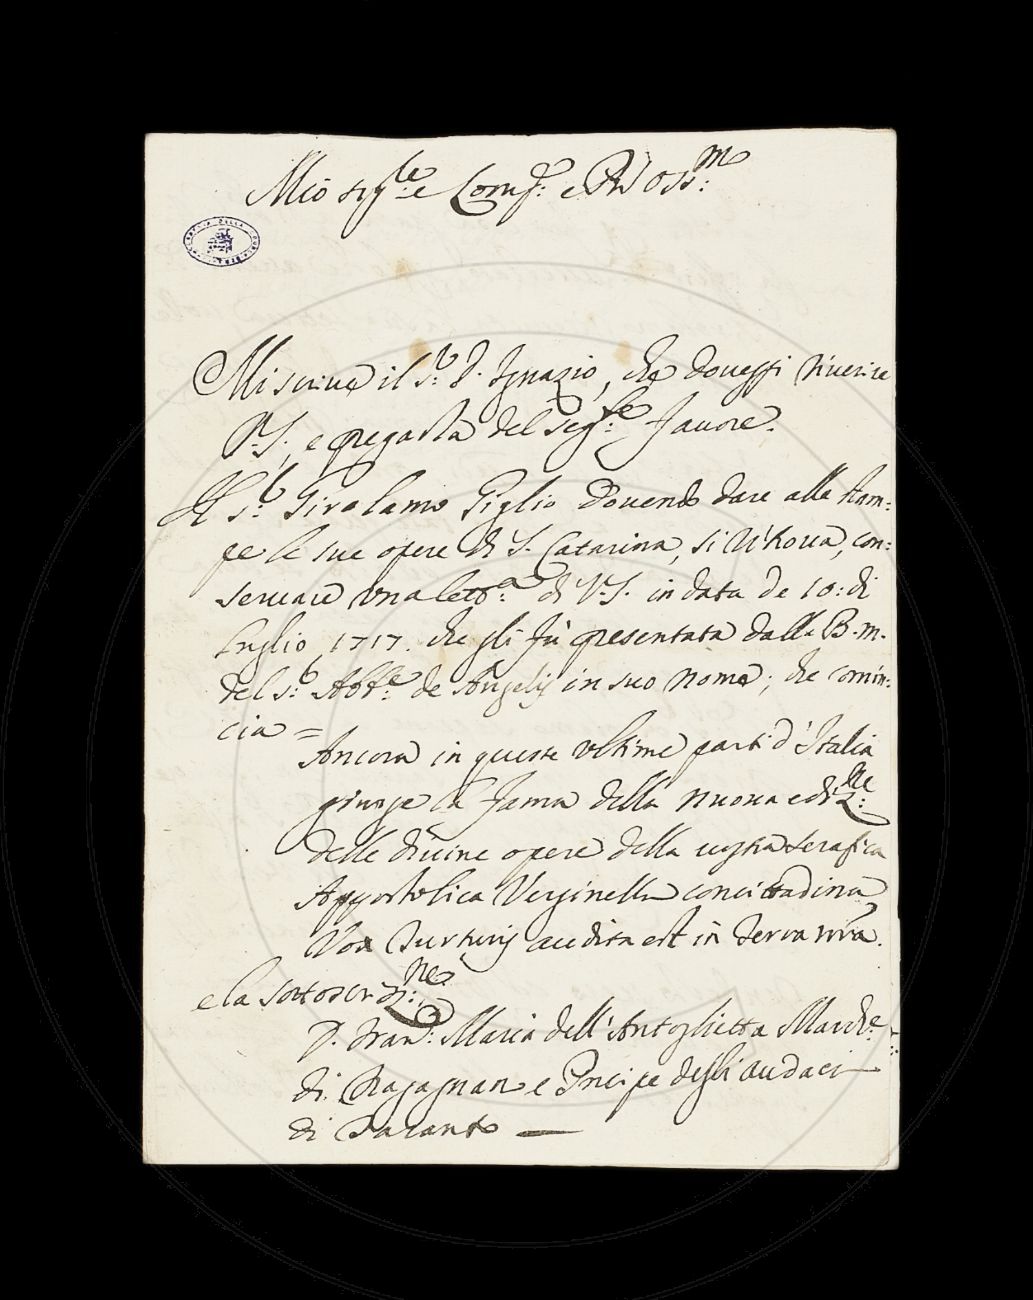 Mio sig.le e Comp.e e Pñ Oss.mo
Mi scrive il s.r D. Ignazio, che dovessi riverire
V.S., e pregarla del seg.te favore.
Il s.r Girolamo Giglio dovendo dare alla stam:
pe le sue opere di S. Catarina, si ritrova, con:
servare una lett.a di V.S. in data de 10: di
Luglio 1717. che gli fù presentata dalla B.m.
del s.r Abb.e de Angelis in suo nome; che comin:
cia =
Ancora in queste ultime parti d'Italia
giunge la fama della nuova ediz.ne
delle divine opere della vostra serafica
Appostolica Verginella concittadina
Vox Turturis audita est in terra nr̃a.
e la sottoscriz.ne
D. Fran.o Maria dell'Antoglietta March.e
di Fragagnan e Prncipe degli audaci
di Taranto —